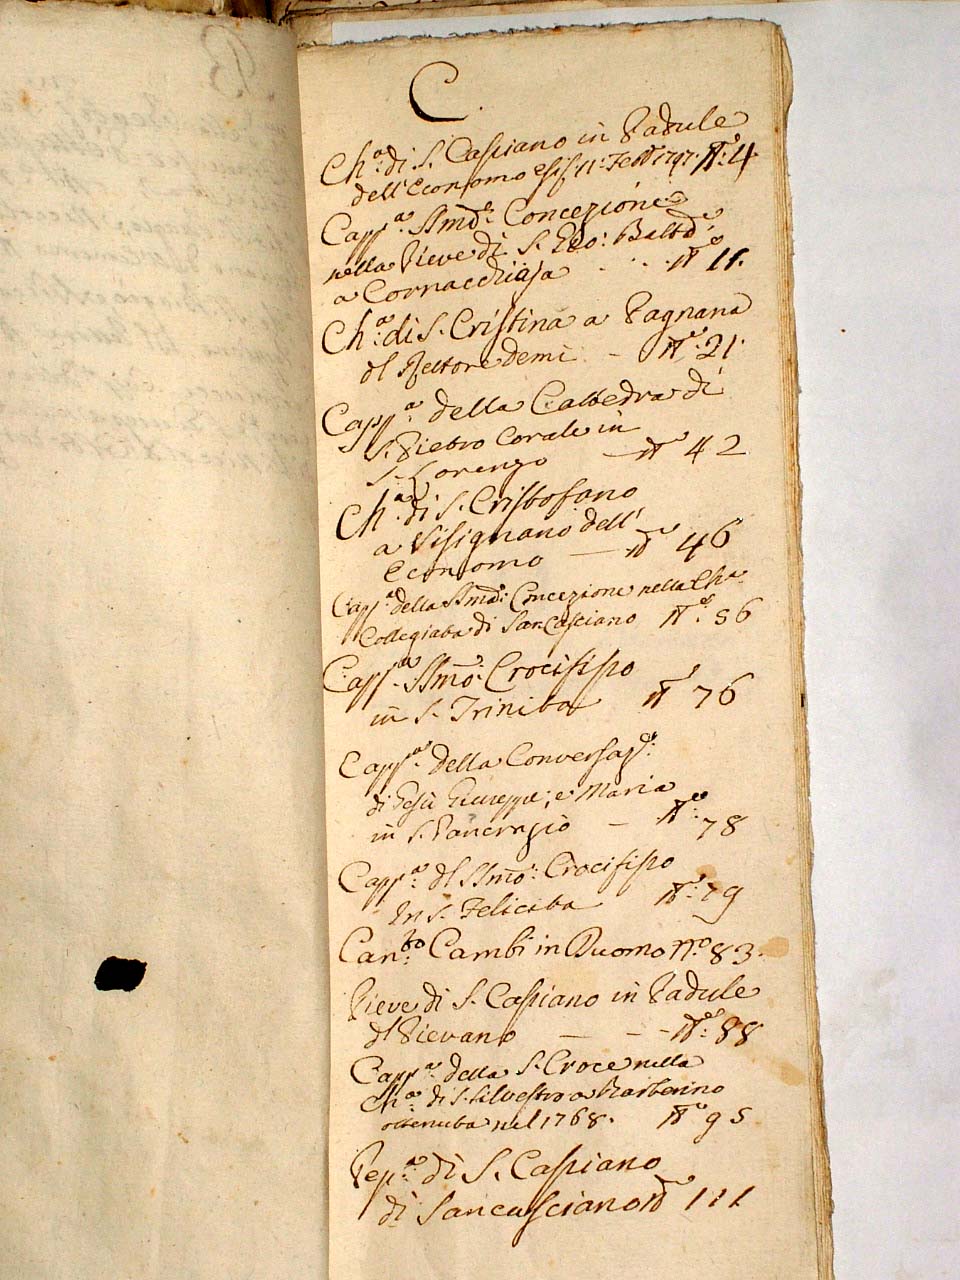 C
Ch.ª di S. Cassiano in Padule
dell'Economo esis. 11: Feb.º 1797. N.º: 4.
Capp.ª SSmã: Concezione
nella Pieve di S. Gio: Batt.ª
a Cornacchiaja N.º 11.
Ch.ª di S. Cristina a Pagnana
dl Rettore demi N.º 21.
Capp.ª della Cattedra di
S. Pietro Corale in
S. Lorenzo N.º 42
Ch.ª di S. Cristofano
a Sisignano dell'
Economo N.º 46
Capp.ª della SSmã: Concezione nella Ch.ª
Collegiata di San Casciano N.º. 56
Capp.ª SSmõ: Crocifisso
in S. Trinita N.º 76
Capp.ª della Conversaz.e:
di Gesù Giuseppe; e Maria
in S. Pancrazio N.º: 78
Capp.ª dl SSmõ: Crocifisso
In S. Felicita N.º: 79
Can.to Cambi in Duomo N.º 83.
Pieve di S. Cassiano in Padule
dl Pievano N.º: 88
Capp.ª della S. Croce nella
Ch.ª di S. Silvestro a Barberino
ottenuta nel 1768. N.º 95
Pep.ª di S. Cassiano
di Sancasciano N.º 111